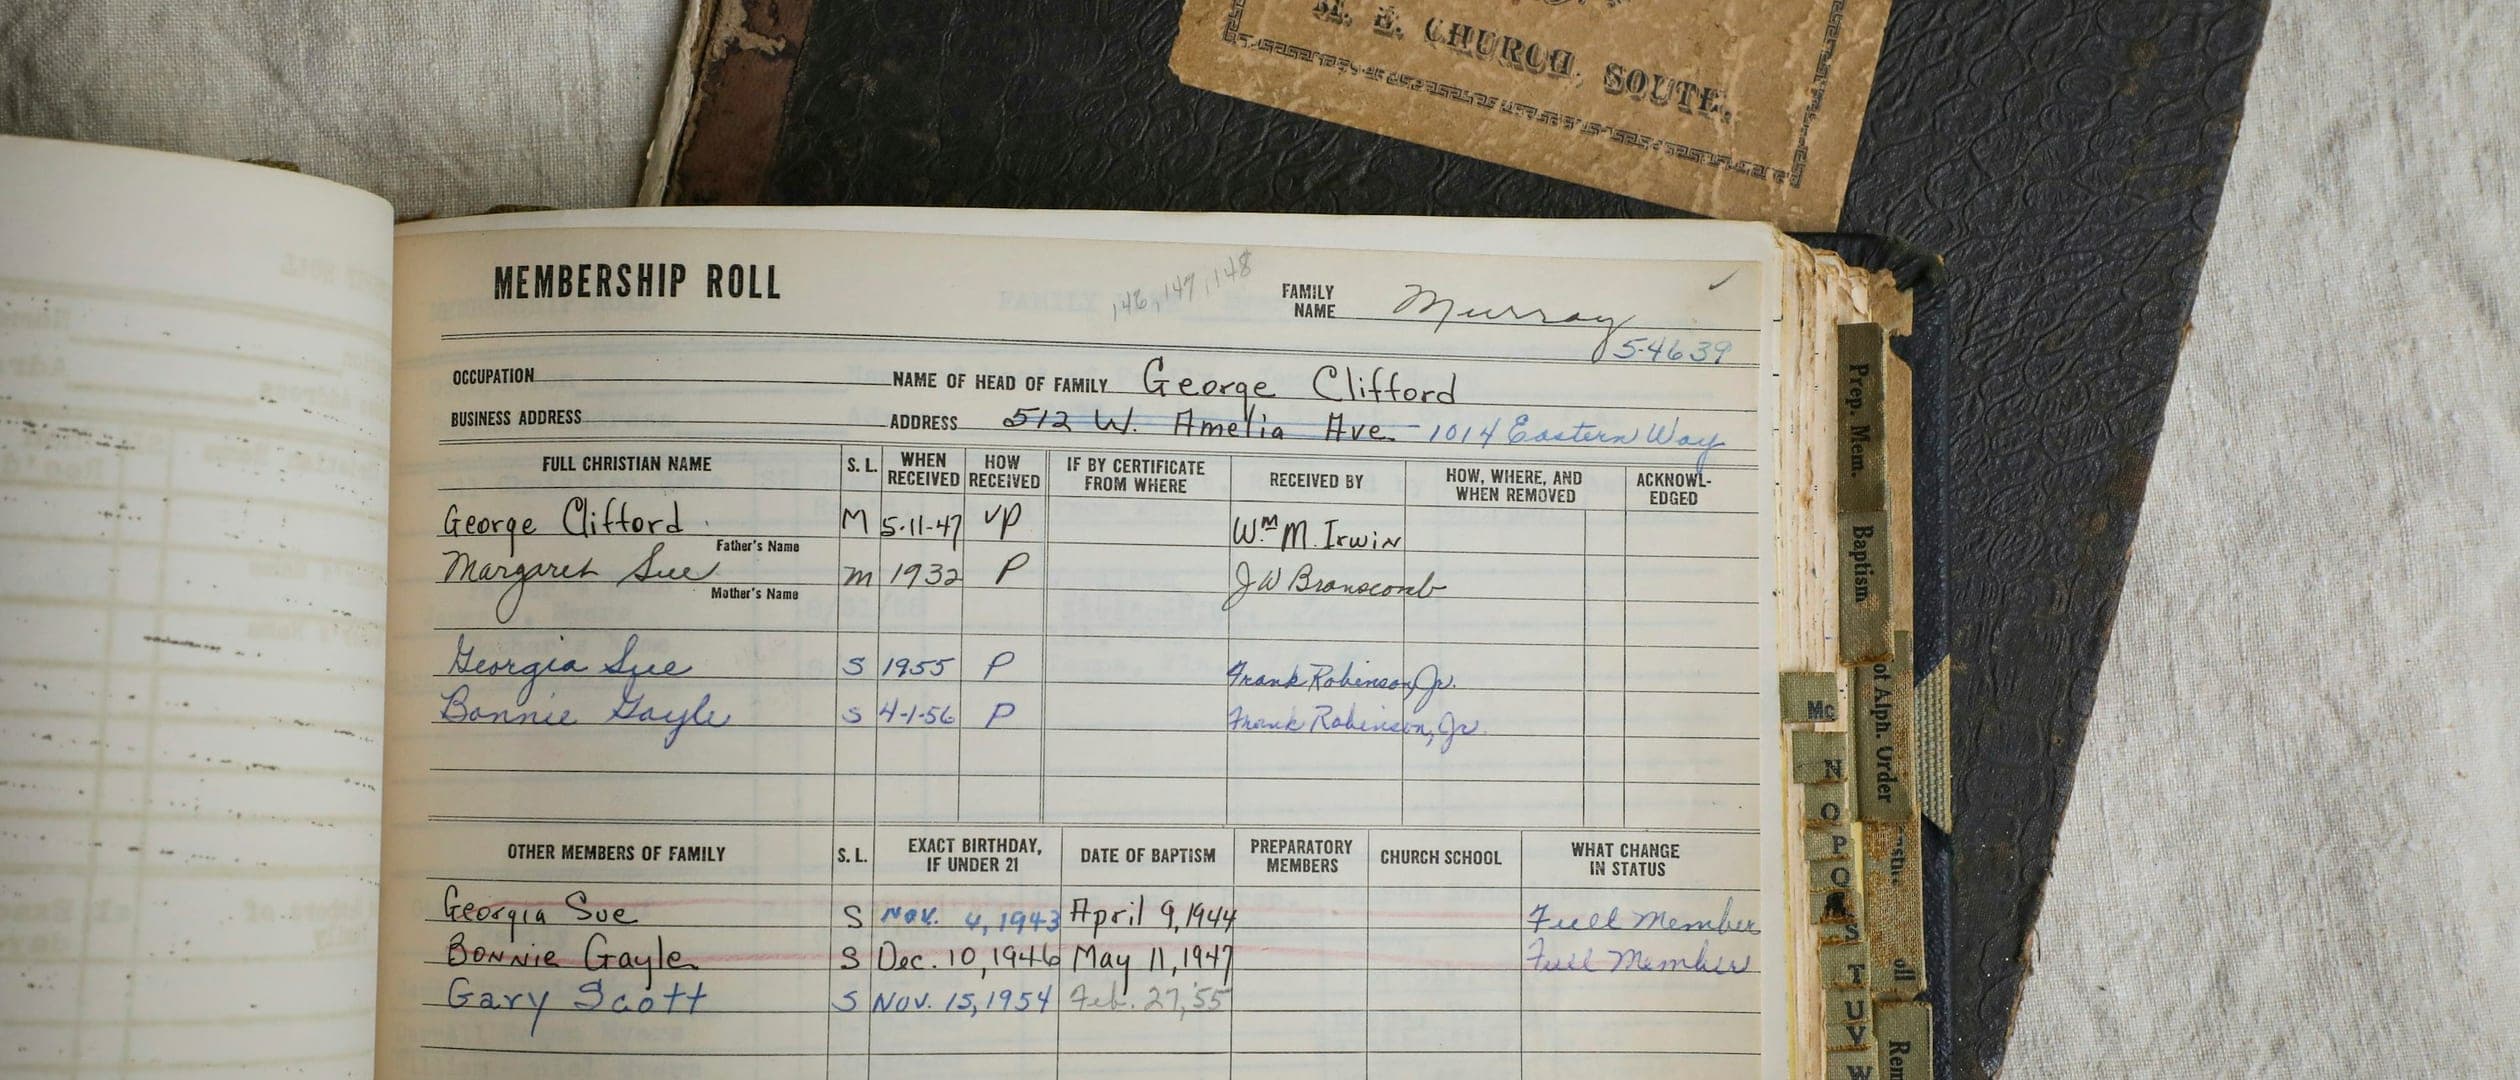 M. E. CHURCH, SOUTH.
MEMBERSHIP ROLL
146, 147, 148
FAMILY NAME Murray
5-4639
OCCUPATION NAME OF HEAD OF FAMILY George Clifford
BUSINESS ADDRESS ADDRESS 512 W. Amelia Ave. - 1014 Eastern Way
FULL CHRISTIAN NAME S. L. WHEN RECEIVED HOW RECEIVED IF BY CERTIFICATE FROM WHERE RECEIVED BY HOW, WHERE, AND WHEN REMOVED ACKNOWL-EDGED
George Clifford M 5-11-47 VP Wm M. Irwin
Father's Name
Margaret Sue M 1932 P J W Branscomb
Mother's Name
Georgia Sue S 1955 P Frank Robinson, Jr.
Bonnie Gayle S 4-1-56 P Frank Robinson, Jr.
OTHER MEMBERS OF FAMILY S. L. EXACT BIRTHDAY, IF UNDER 21 DATE OF BAPTISM PREPARATORY MEMBERS CHURCH SCHOOL WHAT CHANGE IN STATUS
Georgia Sue S Nov. 4, 1943 April 9, 1944 Full Member
Bonnie Gayle S Dec. 10, 1946 May 11, 1947 Full Member
Gary Scott S Nov. 15, 1954 Feb. 27, '55
Prep. Mem.
Baptism
ot Alph. Order
Mc
N
O
P
Q
S
T
U
V
W
oll
Rem